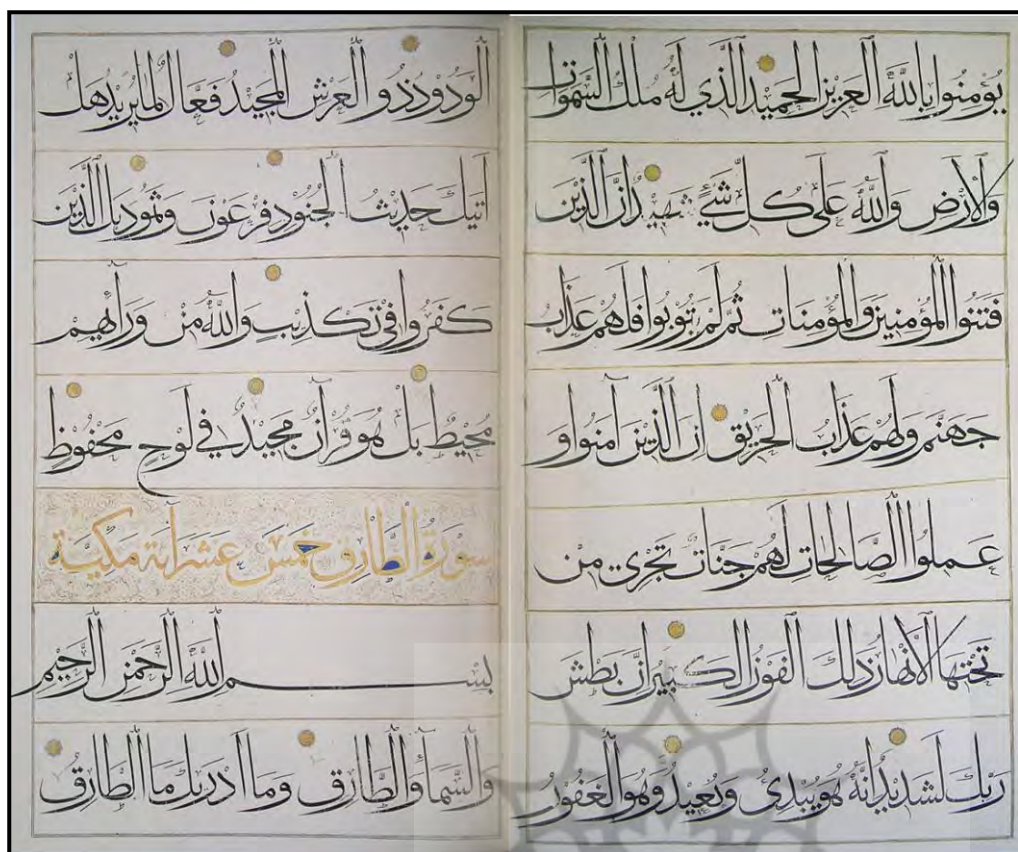 يُؤمِنُوا بِاللهِ العَزيزِ الحَميدِ الَّذي لَهُ مُلكُ السَّمٰوات
وَالاَرضِ وَاللهُ عَلى كُلِّ شَيءٍ شَهيدٌ اِنَّ الَّذينَ
فَتَنُوا المُؤمِنينَ وَالمُؤمِناتِ ثُمَّ لَم يَتُوبُوا فَلَهُم عَذابُ
جَهَنَّمَ وَلَهُم عَذابُ الحَريقِ اِنَّ الَّذينَ آمَنُوا وَ
عَمِلُوا الصَّالِحاتِ لَهُم جَنَّاتٌ تَجري مِن
تَحتِهَا الاَنهارُ ذلِكَ الفَوزُ الكَبيرُ اِنَّ بَطشَ
رَبِّكَ لَشَديدٌ اِنَّهُ هُوَ يُبدِئُ وَيُعيدُ وَهُوَ الغَفُورُ
الوَدُودُ ذُو العَرشِ المَجيدُ فَعَّالٌ لِما يُريدُ هَل
اَتيكَ حَديثُ الجُنُودِ فِرعَونَ وَثَمُودَ بَلِ الَّذينَ
كَفَرُوا في تَكذيبٍ وَاللهُ مِن وَرآئِهِم
مُحيطٌ بَل هُوَ قُرآنٌ مَجيدٌ في لَوحٍ مَحفُوظٍ
سورة الطَّارق خمس عشر آية مكيّة
بِسمِ اللهِ الرَّحمٰنِ الرَّحيمِ
وَالسَّمآءِ وَالطَّارِقِ وَما اَدريكَ مَا الطَّارِقُ